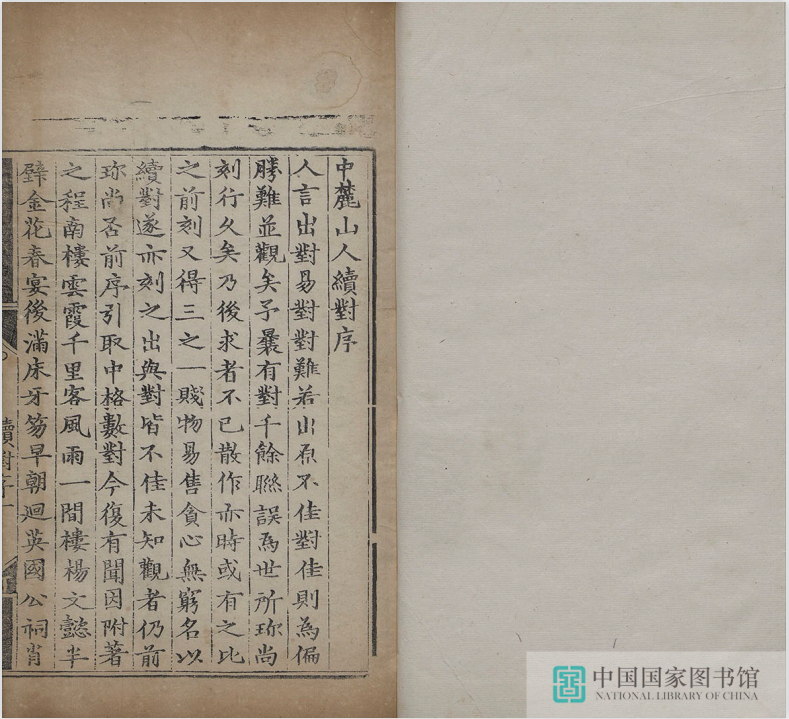 中麓山人續對序
人言出對易對對難若出原不佳對佳則為偏
勝難並觀矣予曩有對千餘聮誤為世所珎尚
刻行久矣乃後求者不已散作亦時或有之比
之前刻又得三之一賤物易售貪心無窮名以
續對遂亦刻之出與對皆不佳未知觀者仍前
珎尚否前序引取中格數對今復有聞因附著
之程南樓雲霞千里客風雨一間樓楊文懿半
璧金花春宴後滿床牙笏早朝迴英國公祠肖
續對序一
中国国家图书馆
NATIONAL LIBRARY OF CHINA